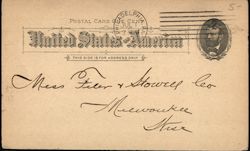 5-
POSTAL CARD ONE CENT
United States of America
THIS SIDE IS FOR ADDRESS ONLY
Mess Filer & Stowell Co
Milwaukee
Wisc